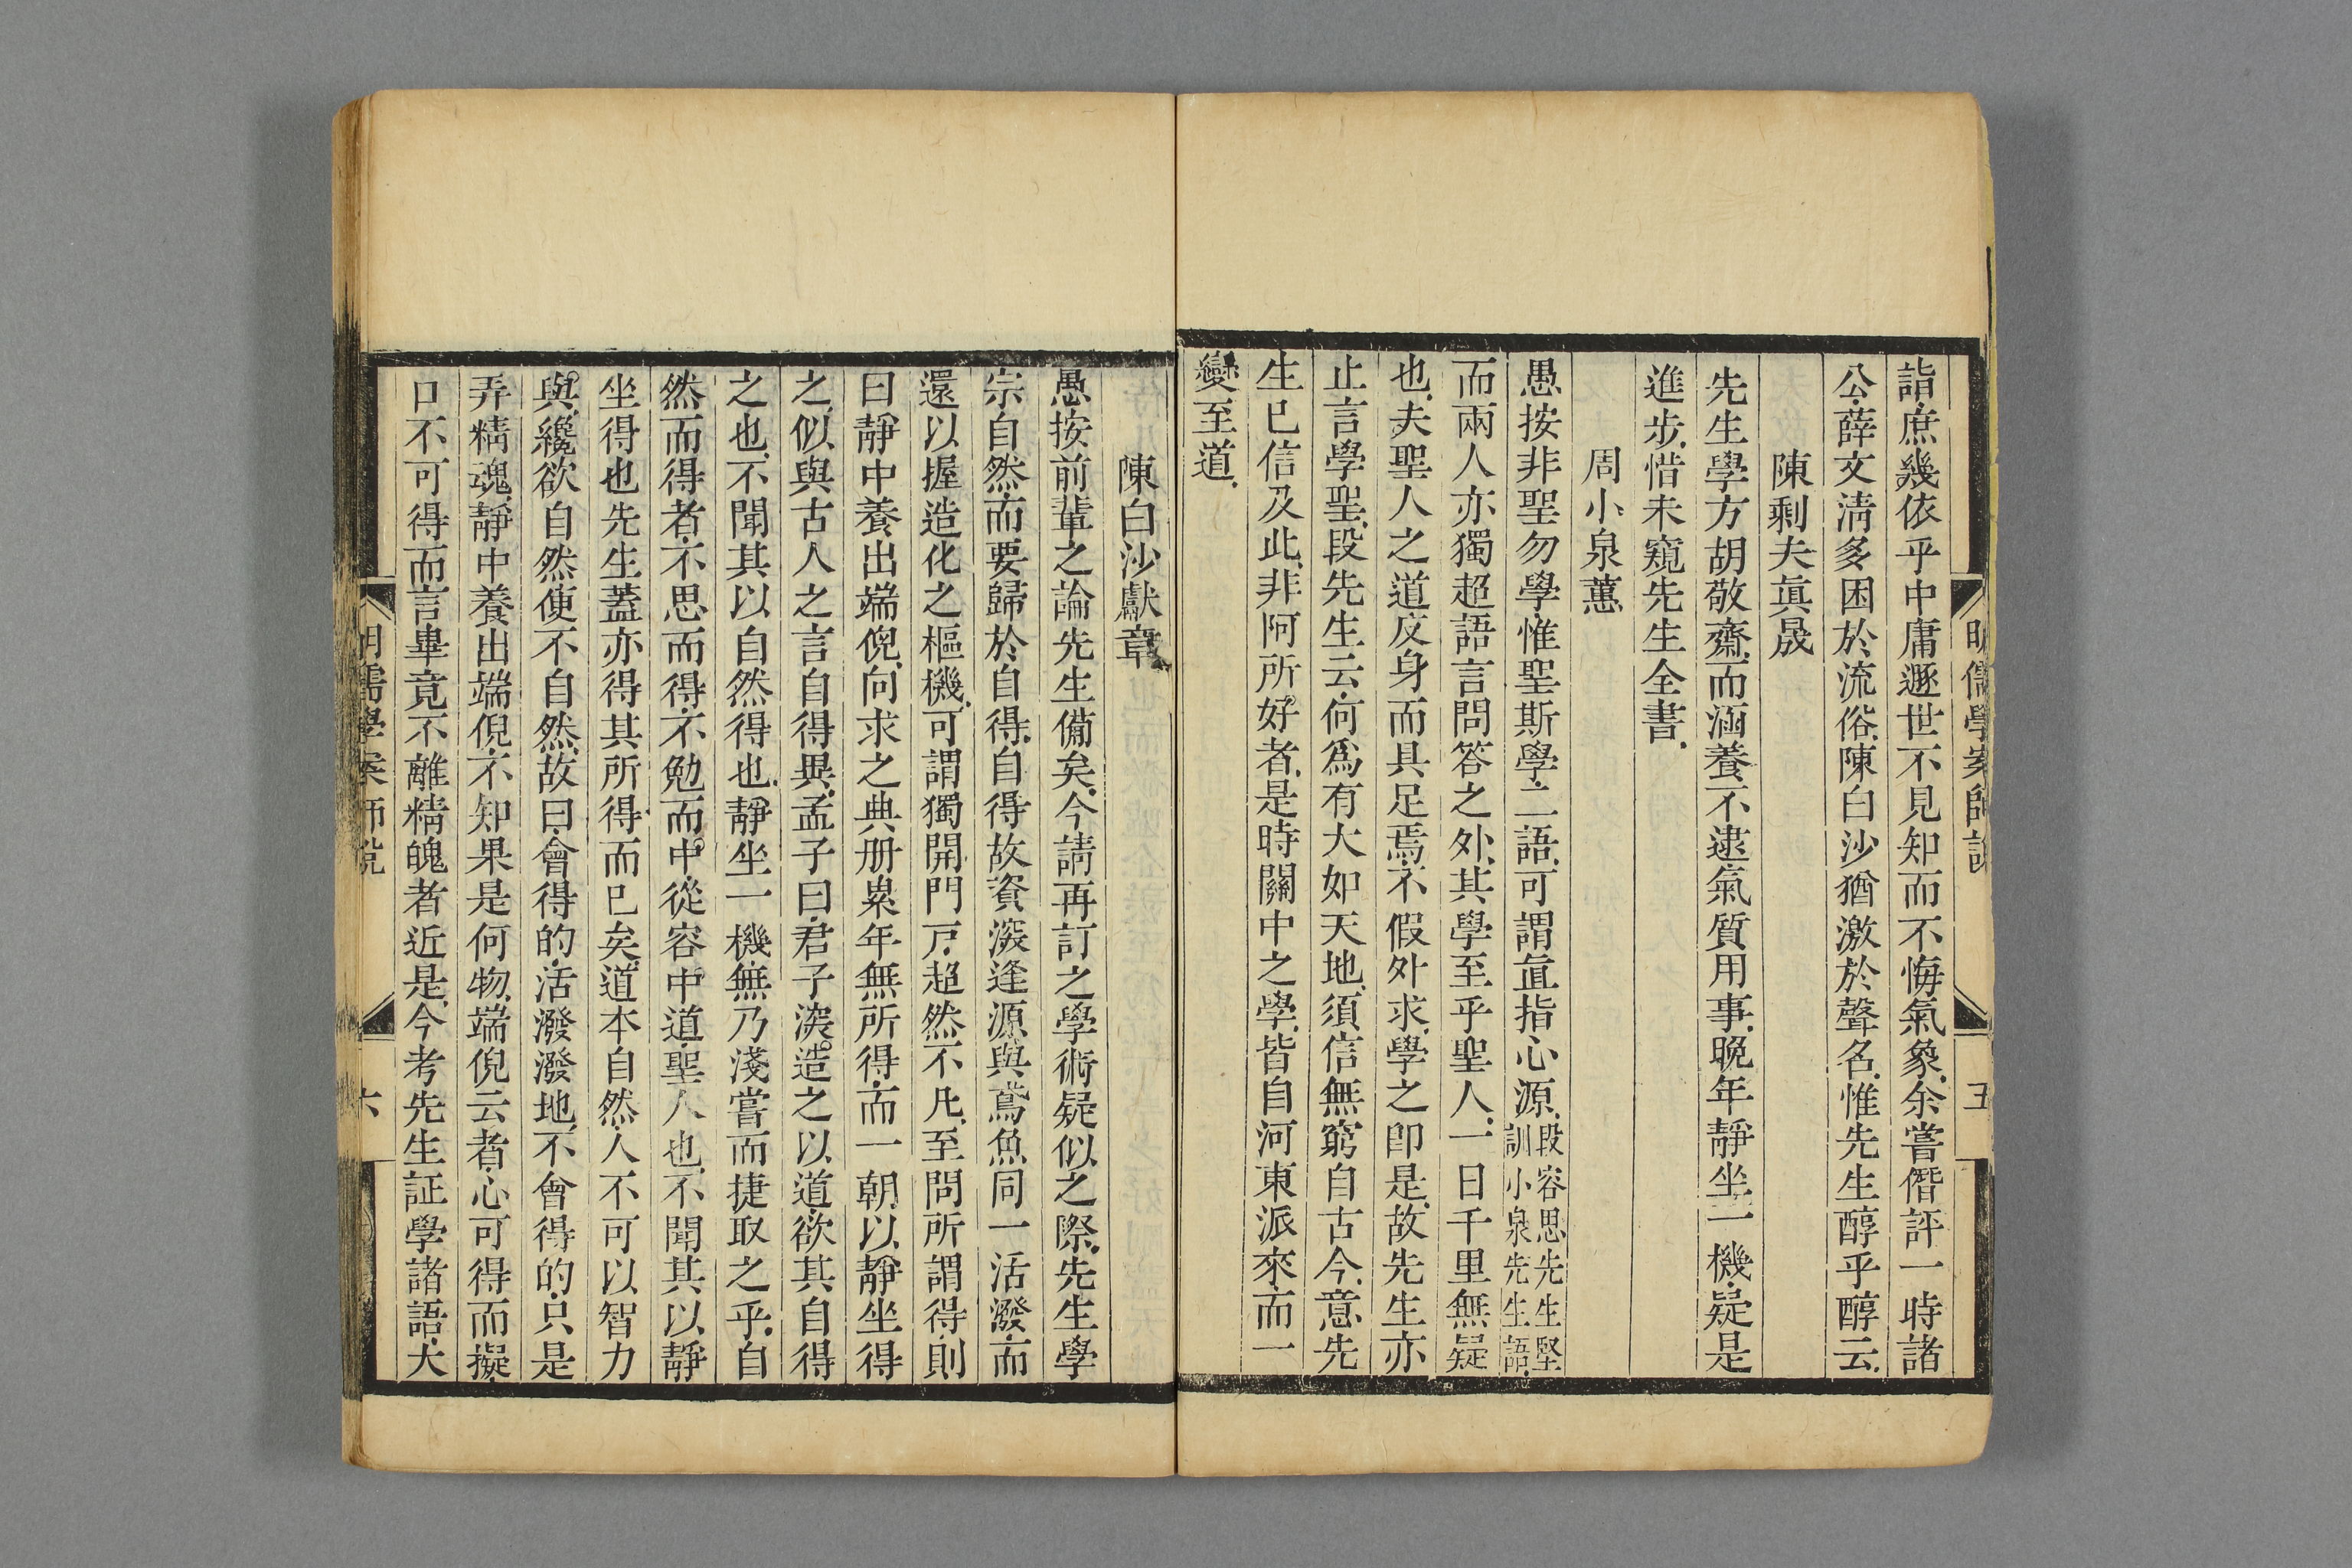 明儒學案師說
五
詣庶幾依乎中庸遯世不見知而不悔氣象余嘗僭評一時諸
公薛文淸多困於流俗陳白沙猶激於聲名惟先生醇乎醇云
陳剩夫眞晟
先生學方胡敬齋而涵養不逮氣質用事晚年靜坐一機疑是
進步惜未窺先生全書
周小泉蕙
愚按非聖勿學惟聖斯學二語可謂直指心源段容思先生堅訓小泉先生語
而兩人亦獨超語言問答之外其學至乎聖人一日千里無疑
也夫聖人之道反身而具足焉不假外求學之卽是故先生亦
止言學聖段先生云何爲有大如天地須信無窮自古今意先
生已信及此非阿所好者是時關中之學皆自河東派來而一
變至道
陳白沙獻章
愚按前輩之論先生備矣今請再訂之學術疑似之際先生學
宗自然而要歸於自得自得故資深逢源與鳶魚同一活潑而
還以握造化之樞機可謂獨開門戸超然不凡至問所謂得則
曰靜中養出端倪向求之典册累年無所得而一朝以靜坐得
之似與古人之言自得異孟子曰君子深造之以道欲其自得
之也不聞其以自然得也靜坐一機無乃淺嘗而捷取之乎自
然而得者不思而得不勉而中從容中道聖人也不聞其以靜
坐得也先生蓋亦得其所得而已矣道本自然人不可以智力
與纔欲自然便不自然故曰會得的活潑潑地不會得的只是
弄精魂靜中養出端倪不知果是何物端倪云者心可得而擬
口不可得而言畢竟不離精魄者近是今考先生証學諸語大
明儒學案師說
六